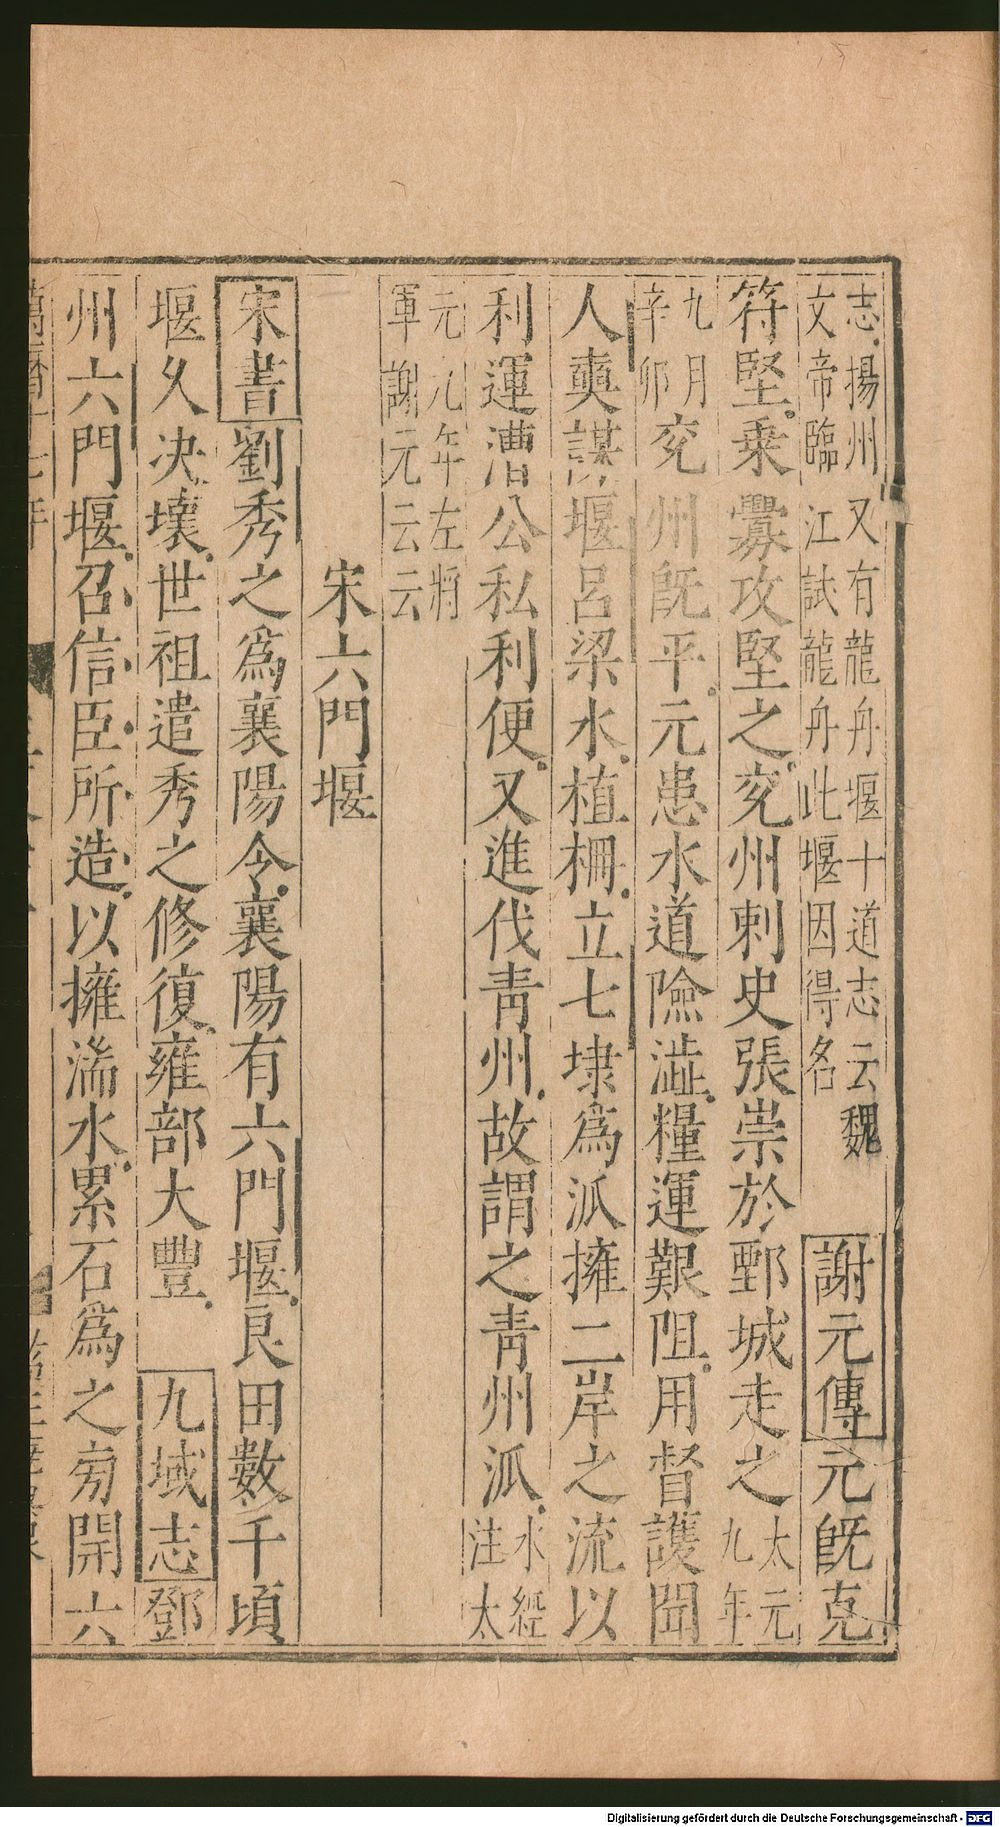 志揚州又有龍舟堰十道志云魏
文帝臨江試龍舟此堰因得名
謝元傳元旣克
符堅乗釁攻堅之兖州刺史張崇於鄄城走之
太元
九年
九月
辛卯
兖州旣平元患水道險澁糧運艱阻用督護聞
人奭謀堰呂梁水植栅立七埭爲派擁二岸之流以
利運漕公私利便又進伐青州故謂之青州派
水經
注太
元九年左將
軍謝元云云
宋六門堰
宋書劉秀之爲襄陽令襄陽有六門堰良田數千頃
堰乆决壞世祖遣秀之修復雍部大豐九域志鄧
州六門堰召信臣所造以擁湍水累石爲之旁開六
Digitalisierung gefördert durch die Deutsche Forschungsgemeinschaft - DFG